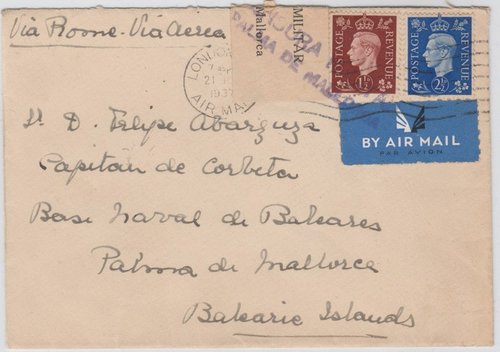 Via Rome - Via Aerea
MILITAR
Mallorca
CENSURA
PALMA DE MALLORCA
LONDON
21
193
AIR MAIL
POSTAGE REVENUE
1½ᴰ
POSTAGE REVENUE
2½ᴰ
BY AIR MAIL
PAR AVION
Sr. D. Felipe Abarzuza
Capitán de Corbeta
Base Naval de Baleares
Palma de Mallorca
Balearic Islands